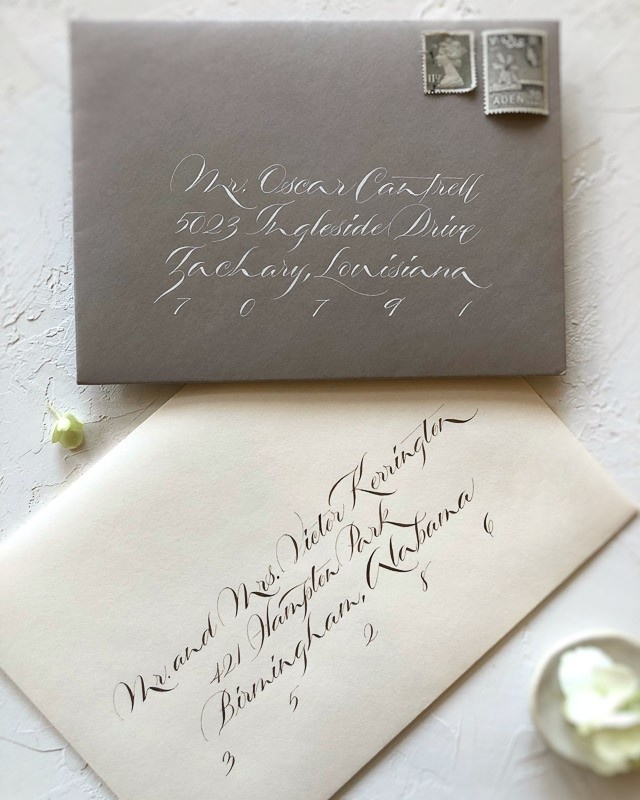 ADEN
Mr. Oscar Cantrell
5023 Ingleside Drive
Zachary, Louisiana
7 0 7 9 1
Mr. and Mrs. Victor Kerrington
421 Hampton Park
Birmingham, Alabama
3 5 2 8 6